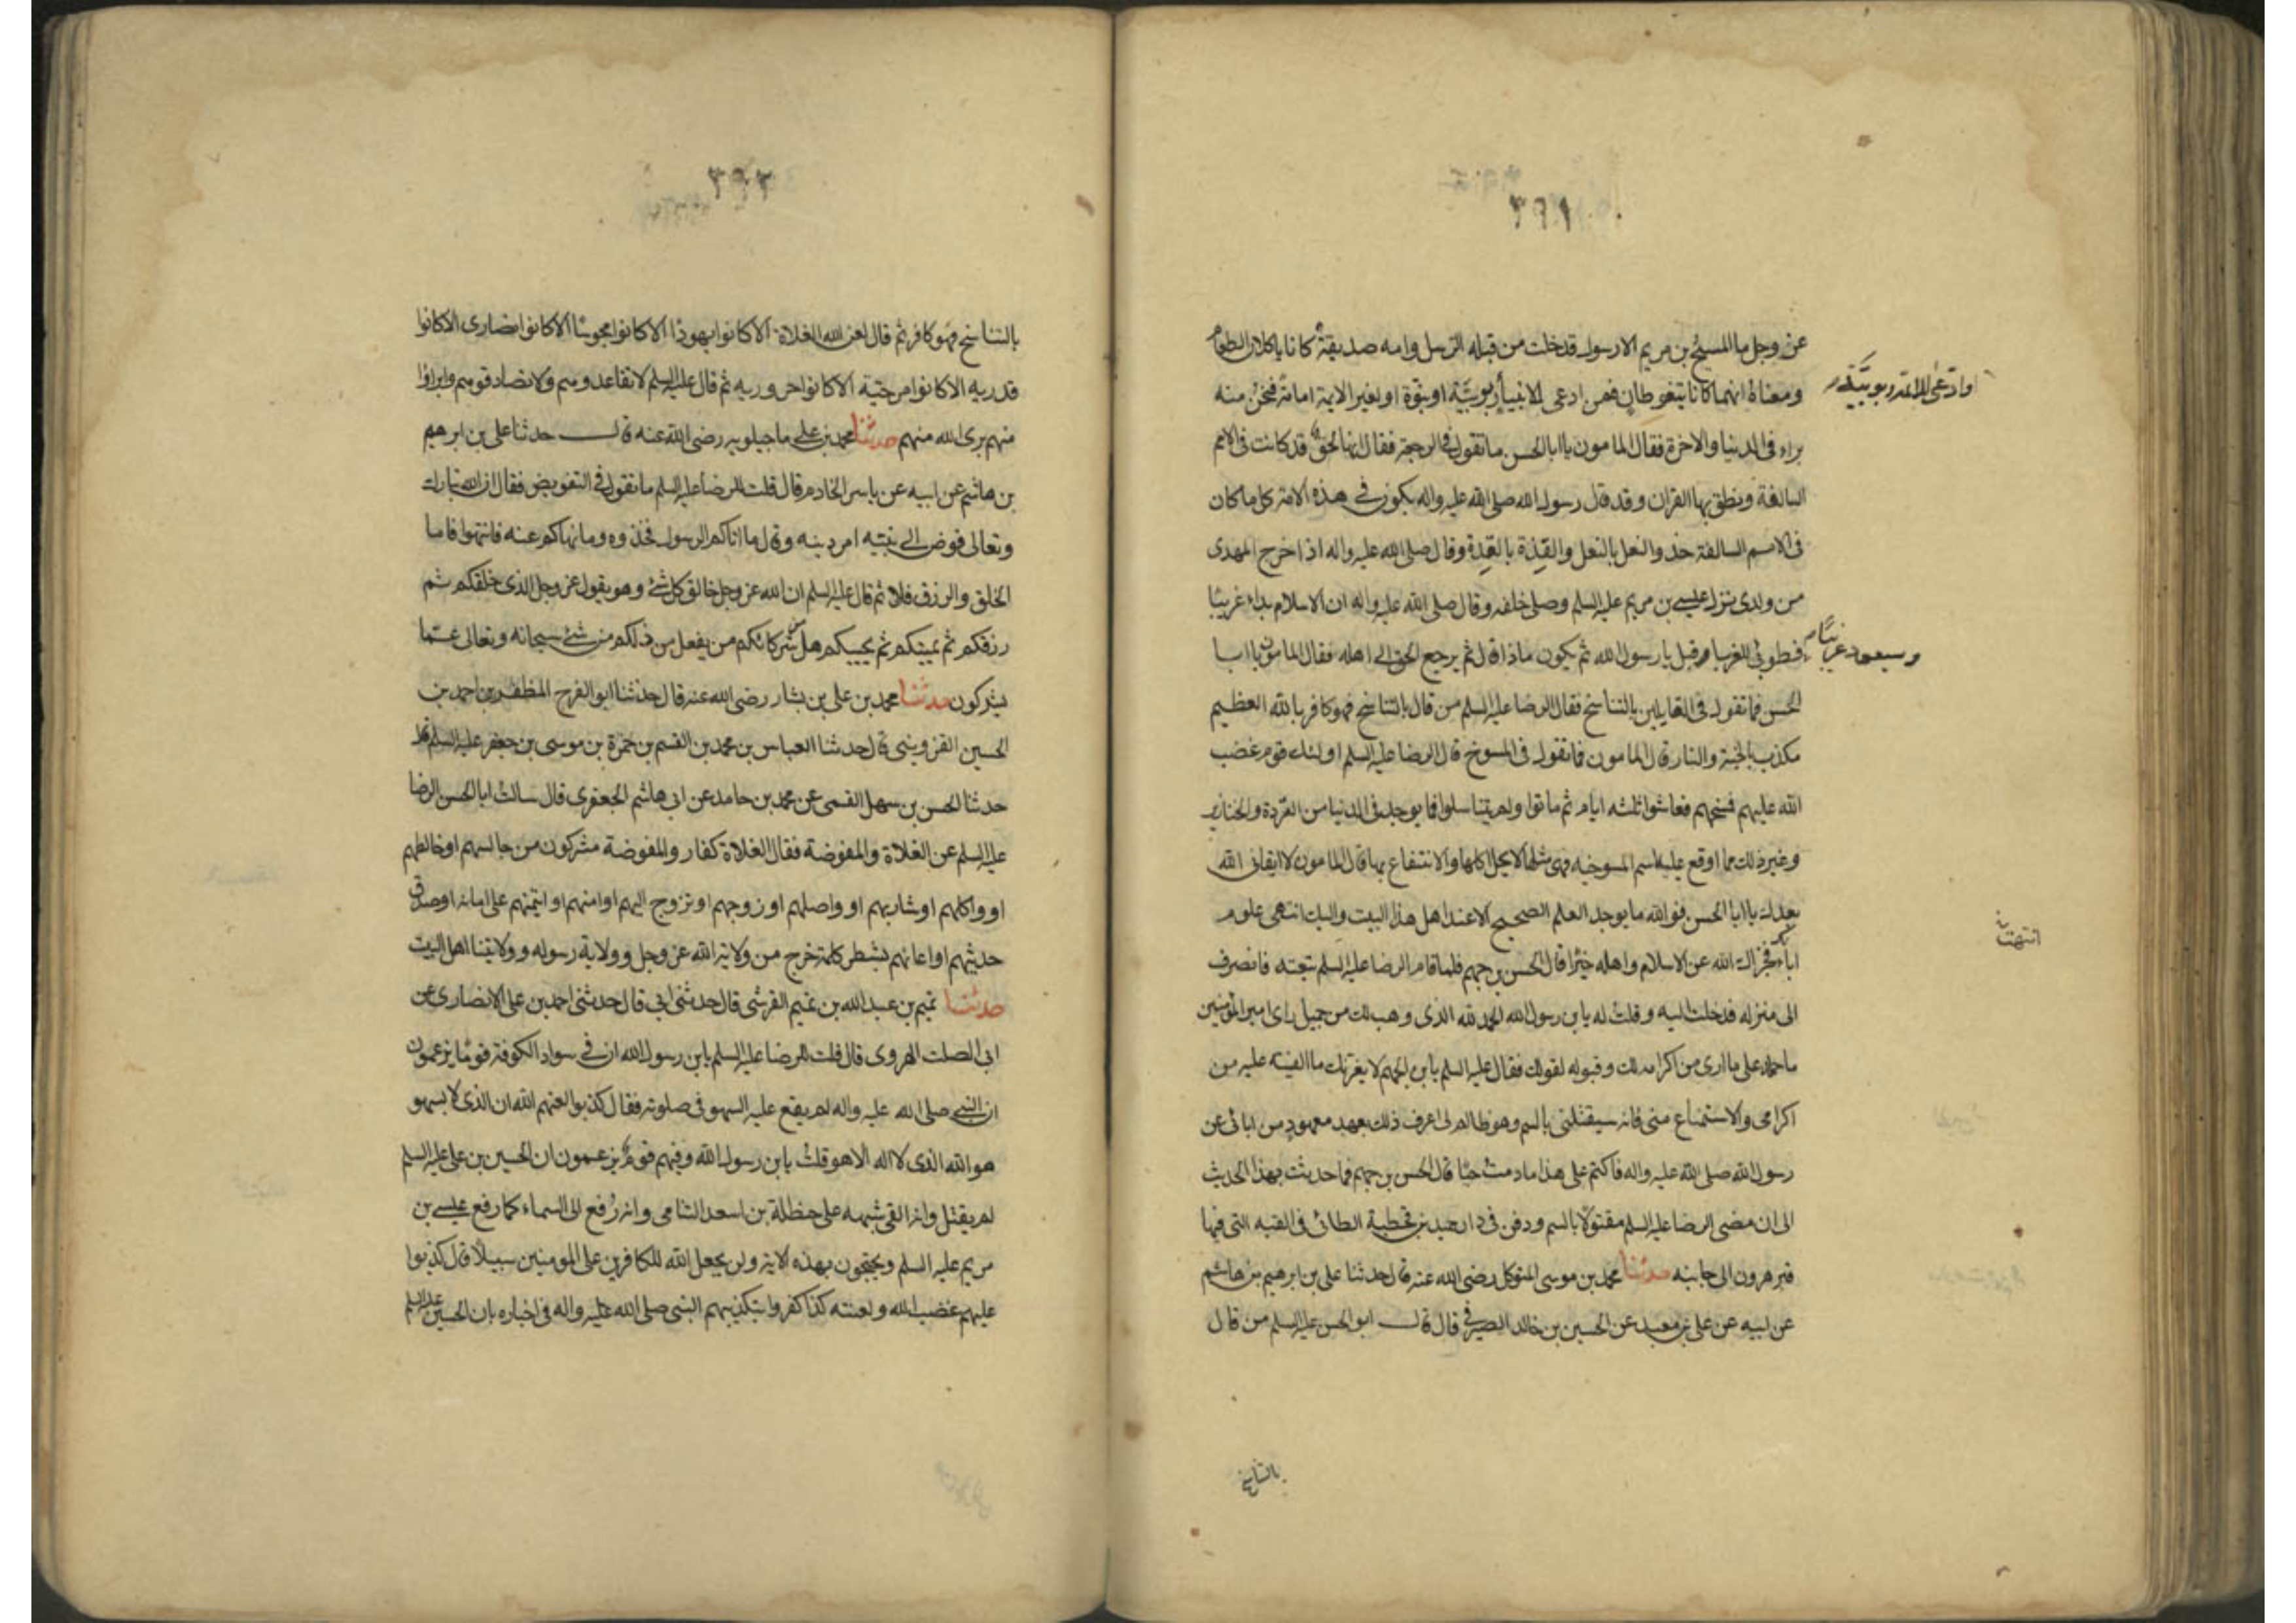 ٣٩١
عز وجل ما المسيح بن مريم الا رسول قد خلت من قبله الرسل وامه صديقة كانا ياكلان الطعام
ومعناه انهما كانا يتغوطان فمن ادعى للانبياء ربوبية او نبوة او لغير الايمة امامة فنحن منه
او ادعى للائمة ربوبية
براء فى الدنيا والاخرة فقال المامون يا ابا الحسن ما تقول فى الرجعة فقال انها لحق قد كانت فى الامم
السالفة ونطق بها القران وقد قال رسول الله صلى الله عليه واله يكون فى هذه الامة كل ما كان
فى الامم السالفة حذو النعل بالنعل والقذة بالقذة وقال صلى الله عليه واله اذا خرج المهدى
من ولدى نزل عيسى بن مريم عليه السلم وصلى خلفه وقال صلى الله عليه واله ان الاسلام بداء غريبًا
وسيعود غريبًا
فطوبى للغرباء قيل يا رسول الله ثم يكون ماذا قال ثم يرجع الحق الى اهله فقال المامون يا ابا
الحسن فما تقول فى القايلين بالتناسخ فقال الرضا عليه السلم من قال بالتناسخ فهو كافر بالله العظيم
مكذب بالجنة والنار قال المامون فما تقول فى المسوخ قال الرضا عليه السلم اولئك قوم غضب
الله عليهم فمسخهم فعاشوا ثلثه ايام ثم ماتوا ولم يتناسلوا فما يوجد فى الدنيا من القردة والخنازير
وغير ذلك مما اوقع عليه اسم المسوخيه فهى مثلها لا يحل اكلها والانتفاع بها قال المامون لا ابقانى الله
بعدك يا ابا الحسن فوالله ما يوجد العلم الصحيح الا عند اهل هذا البيت واليك انتهى علوم
انتهت
ابائك فجزاك الله عن الاسلام واهله خيرًا قال الحسن بن جهم فلما قام الرضا عليه السلم تبعته فانصرف
الى منزله فدخلت اليه وقلت له يا بن رسول الله الحمد لله الذى وهب لك من جميل راى امير المؤمنين
ما حمله على ما ارى من اكرامه لك وقبوله لقولك فقال عليه السلم يا بن الجهم لا يغرنك ما الفيته عليه من
اكرامى والاستماع منى فانه سيقتلنى بالسم وهو ظالم لى اعرف ذلك بعهد معهود من ابائى عن
رسول الله صلى الله عليه واله فاكتم على هذا ما دمت حيًا قال الحسن بن جهم فما حدثت بهذا الحديث
الى ان مضى الرضا عليه السلم مقتولًا بالسم ودفن فى دار حميد بن قحطبة الطائى فى القبه التى فيها
قبر هرون الى جانبه حدثنا محمد بن موسى المتوكل رضى الله عنه قال حدثنا على بن ابرهيم بن هاشم
عن ابيه عن على بن معبد عن الحسين بن خالد الصيرفى قال قال ابو الحسن عليه السلم من قال
بالتناسخ
٣٩٢
بالتناسخ فهو كافر ثم قال لعن الله الغلاة الا كانوا يهودًا الا كانوا مجوسًا الا كانوا نصارى الا كانوا
قدريه الا كانوا مرجئة الا كانوا حروريه ثم قال عليه السلم لا تقاعدوهم ولا تصادقوهم وابراؤا
منهم برى الله منهم حدثنا محمد بن على ماجيلويه رضى الله عنه قال حدثنا على بن ابرهيم
بن هاشم عن ابيه عن ياسر الخادم قال قلت للرضا عليه السلم ما تقول فى التفويض فقال ان الله تبارك
وتعالى فوض الى نبيه امر دينه وقال ما اتاكم الرسول فخذوه وما نهاكم عنه فانتهوا فاما
الخلق والرزق فلا ثم قال عليه السلم ان الله عز وجل خالق كل شئ وهو يقول عز وجل الذى خلقكم ثم
رزقكم ثم يميتكم ثم يحييكم هل من شركائكم من يفعل من ذلكم من شئ سبحانه وتعالى عما
يشركون حدثنا محمد بن على بن بشار رضى الله عنه قال حدثنا ابو الفرج المظفر بن احمد بن
الحسين القزوينى قال حدثنا العباس بن محمد بن القسم بن حمزة بن موسى بن جعفر عليه السلم قال
حدثنا الحسن بن سهل القمى عن محمد بن حامد عن ابى هاشم الجعفرى قال سالت ابا الحسن الرضا
عليه السلم عن الغلاة والمفوضة فقال الغلاة كفار والمفوضة مشركون من جالسهم او خالطهم
او واكلهم او شاربهم او واصلهم او زوجهم او تزوج اليهم او امنهم او ائتمنهم على امانة او صدق
حديثهم او اعانهم بشطر كلمة خرج من ولاية الله عز وجل وولاية رسوله وولايتنا اهل البيت
حدثنا تميم بن عبد الله بن تميم القرشى قال حدثنى ابى قال حدثنى احمد بن على الانصارى عن
ابى الصلت الهروى قال قلت للرضا عليه السلم يا بن رسول الله ان فى سواد الكوفة قومًا يزعمون
ان النبى صلى الله عليه واله لم يقع عليه السهو فى صلوته فقال كذبوا لعنهم الله ان الذى لا يسهو
هو الله الذى لا اله الا هو قلت يا بن رسول الله وفيهم قوم يزعمون ان الحسين بن على عليه السلم
لم يقتل وانه القى شبهه على حنظلة بن اسعد الشامى وانه رُفع الى السماء كما رفع عيسى بن
مريم عليه السلم ويحتجون بهذه الاية ولن يجعل الله للكافرين على المومنين سبيلًا قال كذبوا
عليهم غضب الله ولعنته كذا كفروا بتكذيبهم النبى صلى الله عليه واله فى اخباره بان الحسين عليه السلم